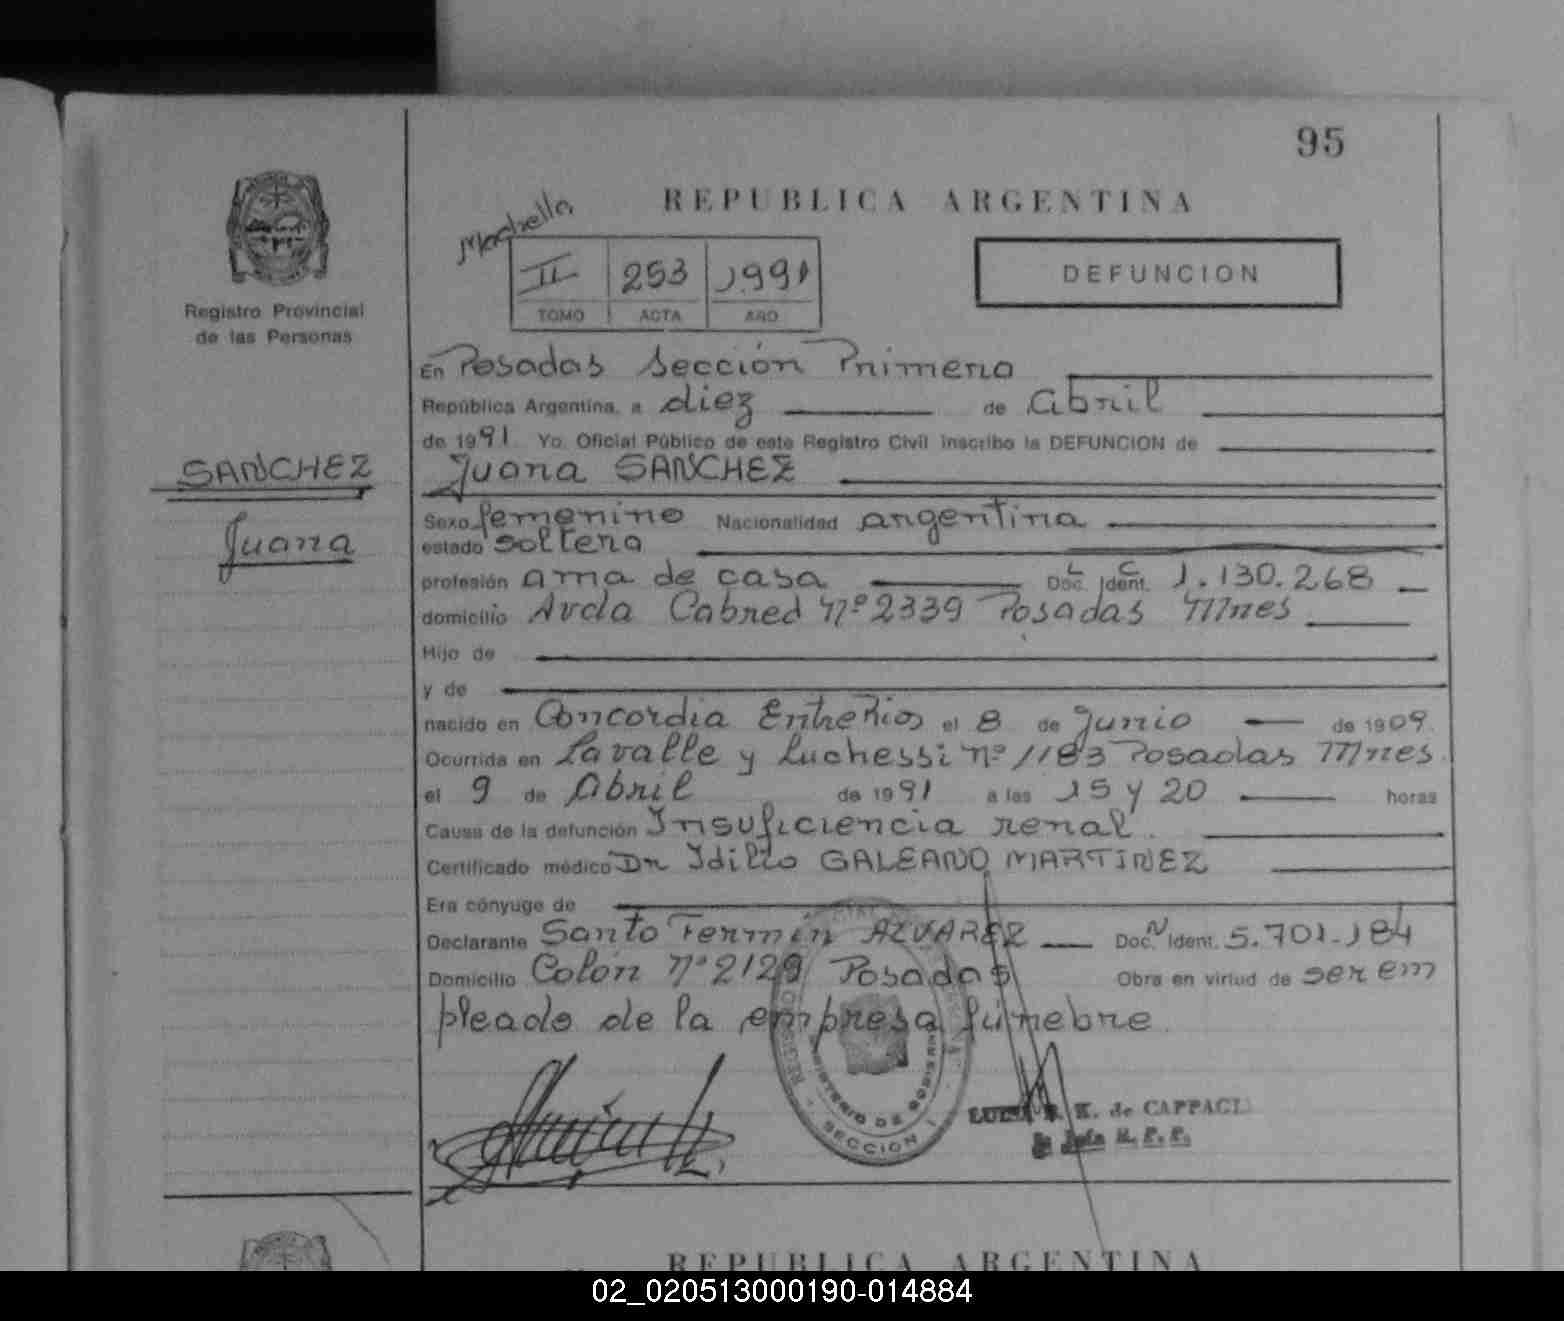 95
REPUBLICA ARGENTINA
Registro Provincial
de las Personas
II 253 1991
TOMO ACTA AÑO
DEFUNCION
SANCHEZ
Juana
En Posadas Sección Primera
República Argentina, a diez de abril
de 1991. Yo, Oficial Público de este Registro Civil inscribo la DEFUNCION de
Juana SANCHEZ
Sexo femenino Nacionalidad argentina
estado soltera
profesión ama de casa Doc. Ident. L C 1.130.268
domicilio Avda Cabred Nº 2339 Posadas Mnes
Hijo de
y de
nacido en Concordia Entre Rios el 8 de Junio de 1909.
Ocurrida en Lavalle y Luchessi nº 1183 Posadas Mnes.
el 9 de Abril de 1991 a las 15 y 20 horas
Causa de la defunción Insuficiencia renal.
Certificado médico Dr Idilio GALEANO MARTINEZ
Era cónyuge de
Declarante Santo Fermin ALVAREZ Doc. N Ident. 5.701.184
Domicilio Colón nº 2129 Posadas Obra en virtud de ser em
pleado de la empresa fúnebre
MINISTERIO DE GOBIERNO
SECCION 1
K. de CAPPAGLI
Jefa R. P. P.
REPUBLICA ARGENTINA
02_020513000190-014884